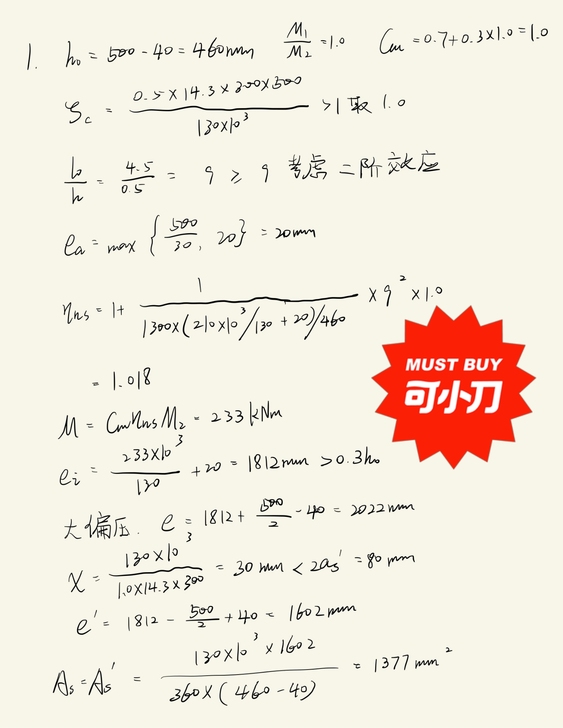 1. h₀ = 500 - 40 = 460mm M₁/M₂ = 1.0 Cm = 0.7 + 0.3×1.0 = 1.0
ξc = 0.5×14.3×300×500 / 130×10³ >1 取 1.0
l₀/h = 4.5/0.5 = 9 ≥ 9 考虑二阶效应
ea = max { 500/30, 20 } = 20mm
ηns = 1+ 1 / 1300×(210×10³/130 + 20)/460 × 9² ×1.0
= 1.018
M = CmηnsM₂ = 233kNm
ei = 233×10³ / 130 + 20 = 1812mm > 0.3h₀
大偏压. e = 1812 + 500/2 - 40 = 2022mm
x = 130×10³ / 1.0×14.3×300 = 30mm < 2as' = 80mm
e' = 1812 - 500/2 + 40 = 1602mm
As = As' = 130×10³×1602 / 360×(460-40) = 1377mm²
MUST BUY
可小刀